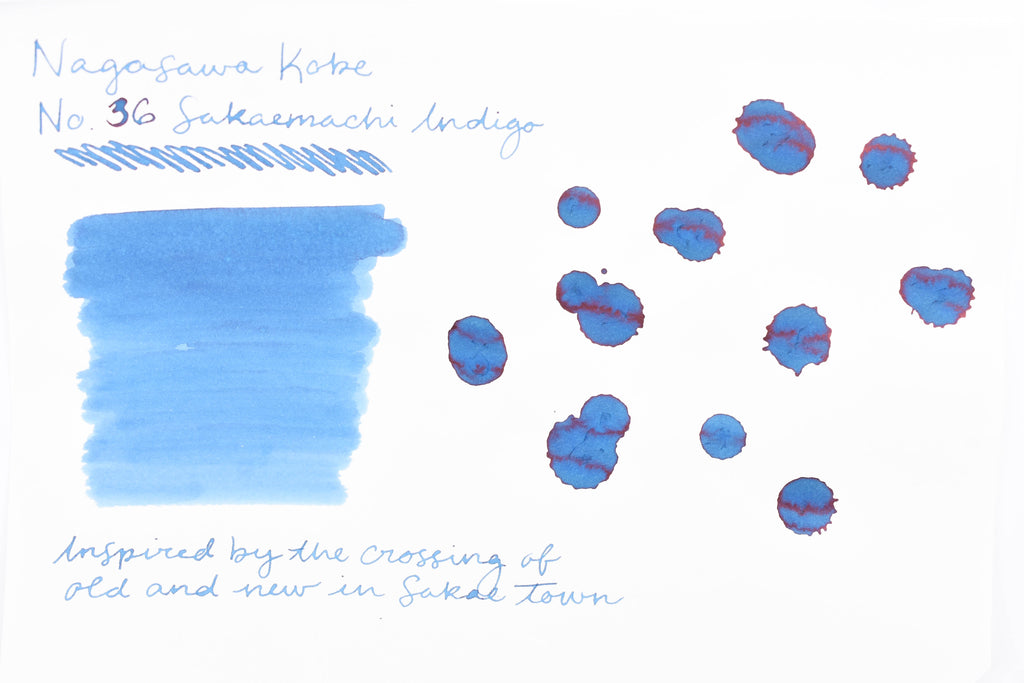 Nagasawa Kobe
No. 36 Sakaemachi Indigo
Inspired by the crossing of
old and new in Sakae Town